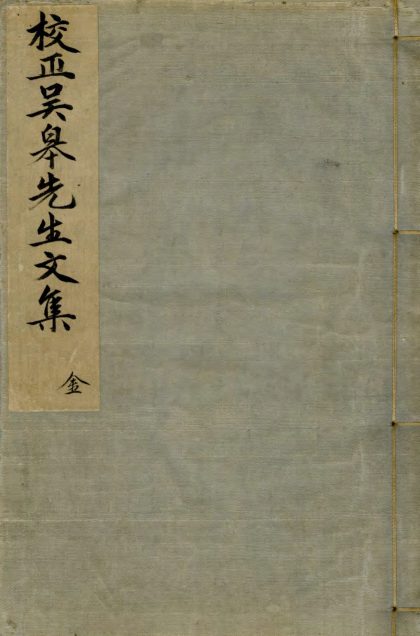 校正吴皋先生文集
金